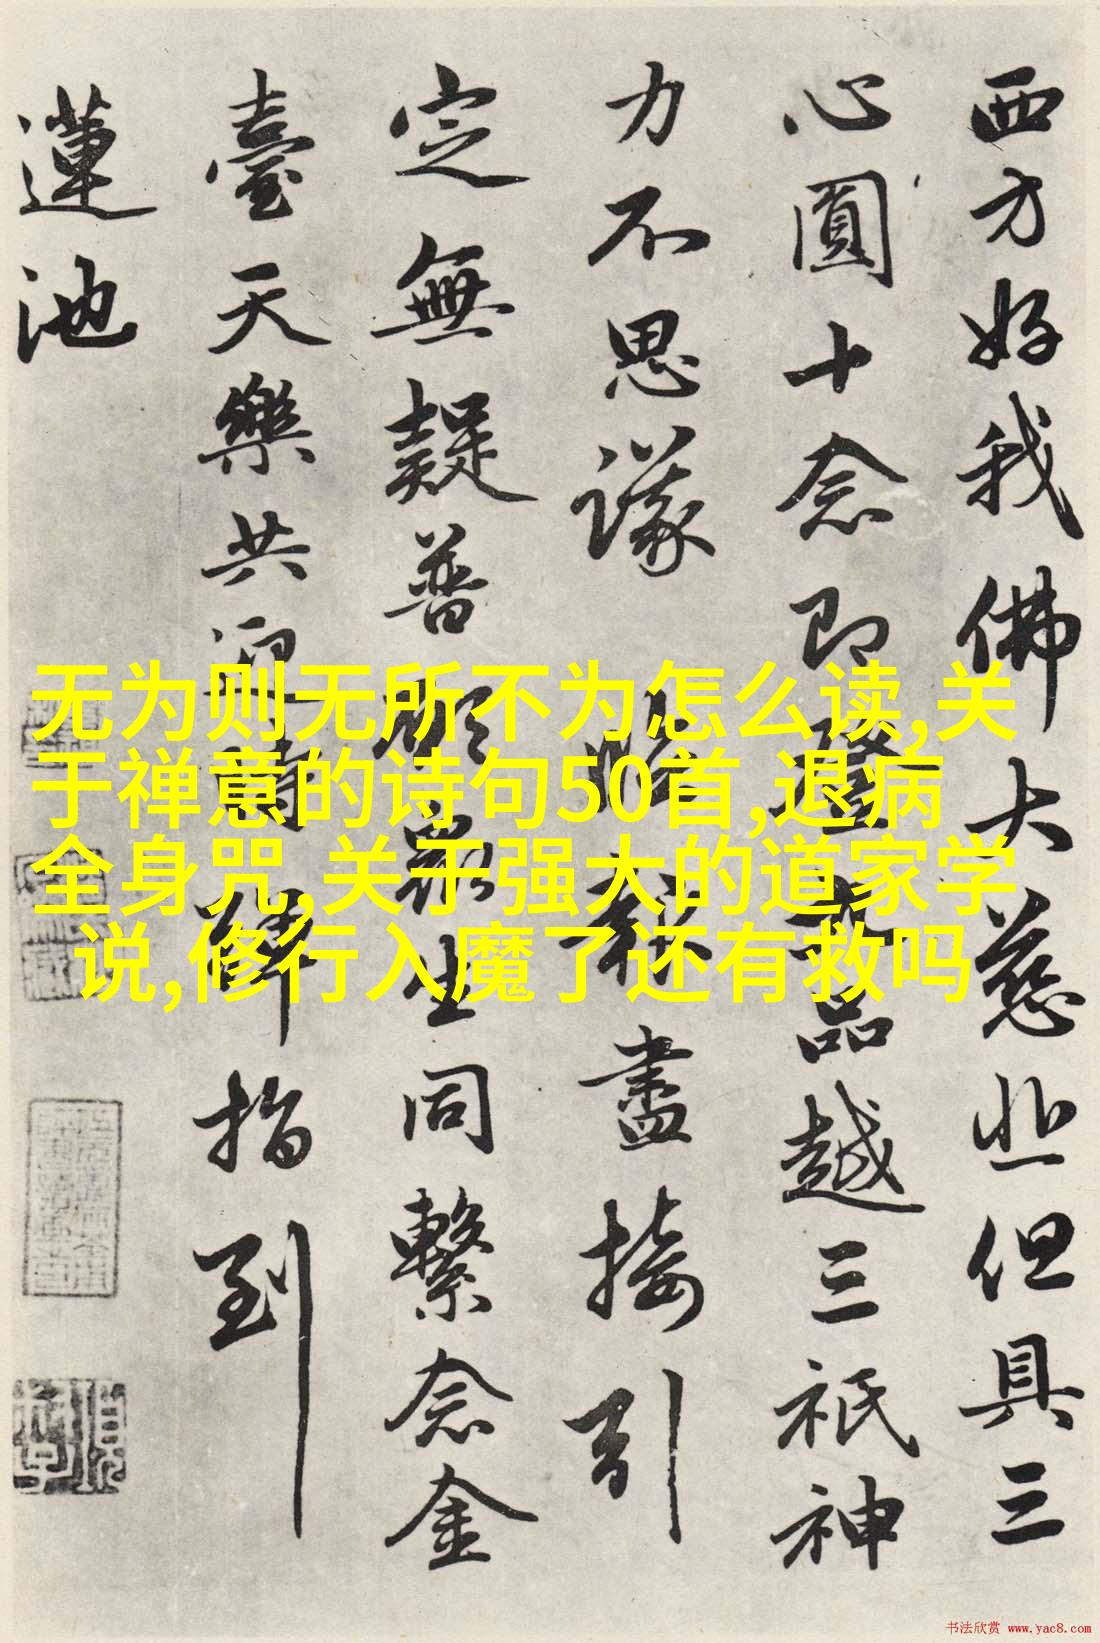 西方好我佛大慈悲但具三
心圓十念即登品越三祇神
力不思議臨報盡接引
定無疑普願眾生同繫念金
臺天樂共迎時彈指到
蓮池
无为则无所不为怎么读,关
于禅意的诗句50首,退病
全身咒,关于强大的道家学
说,修行入魔了还有救吗
书法欣赏 www.yac8.com